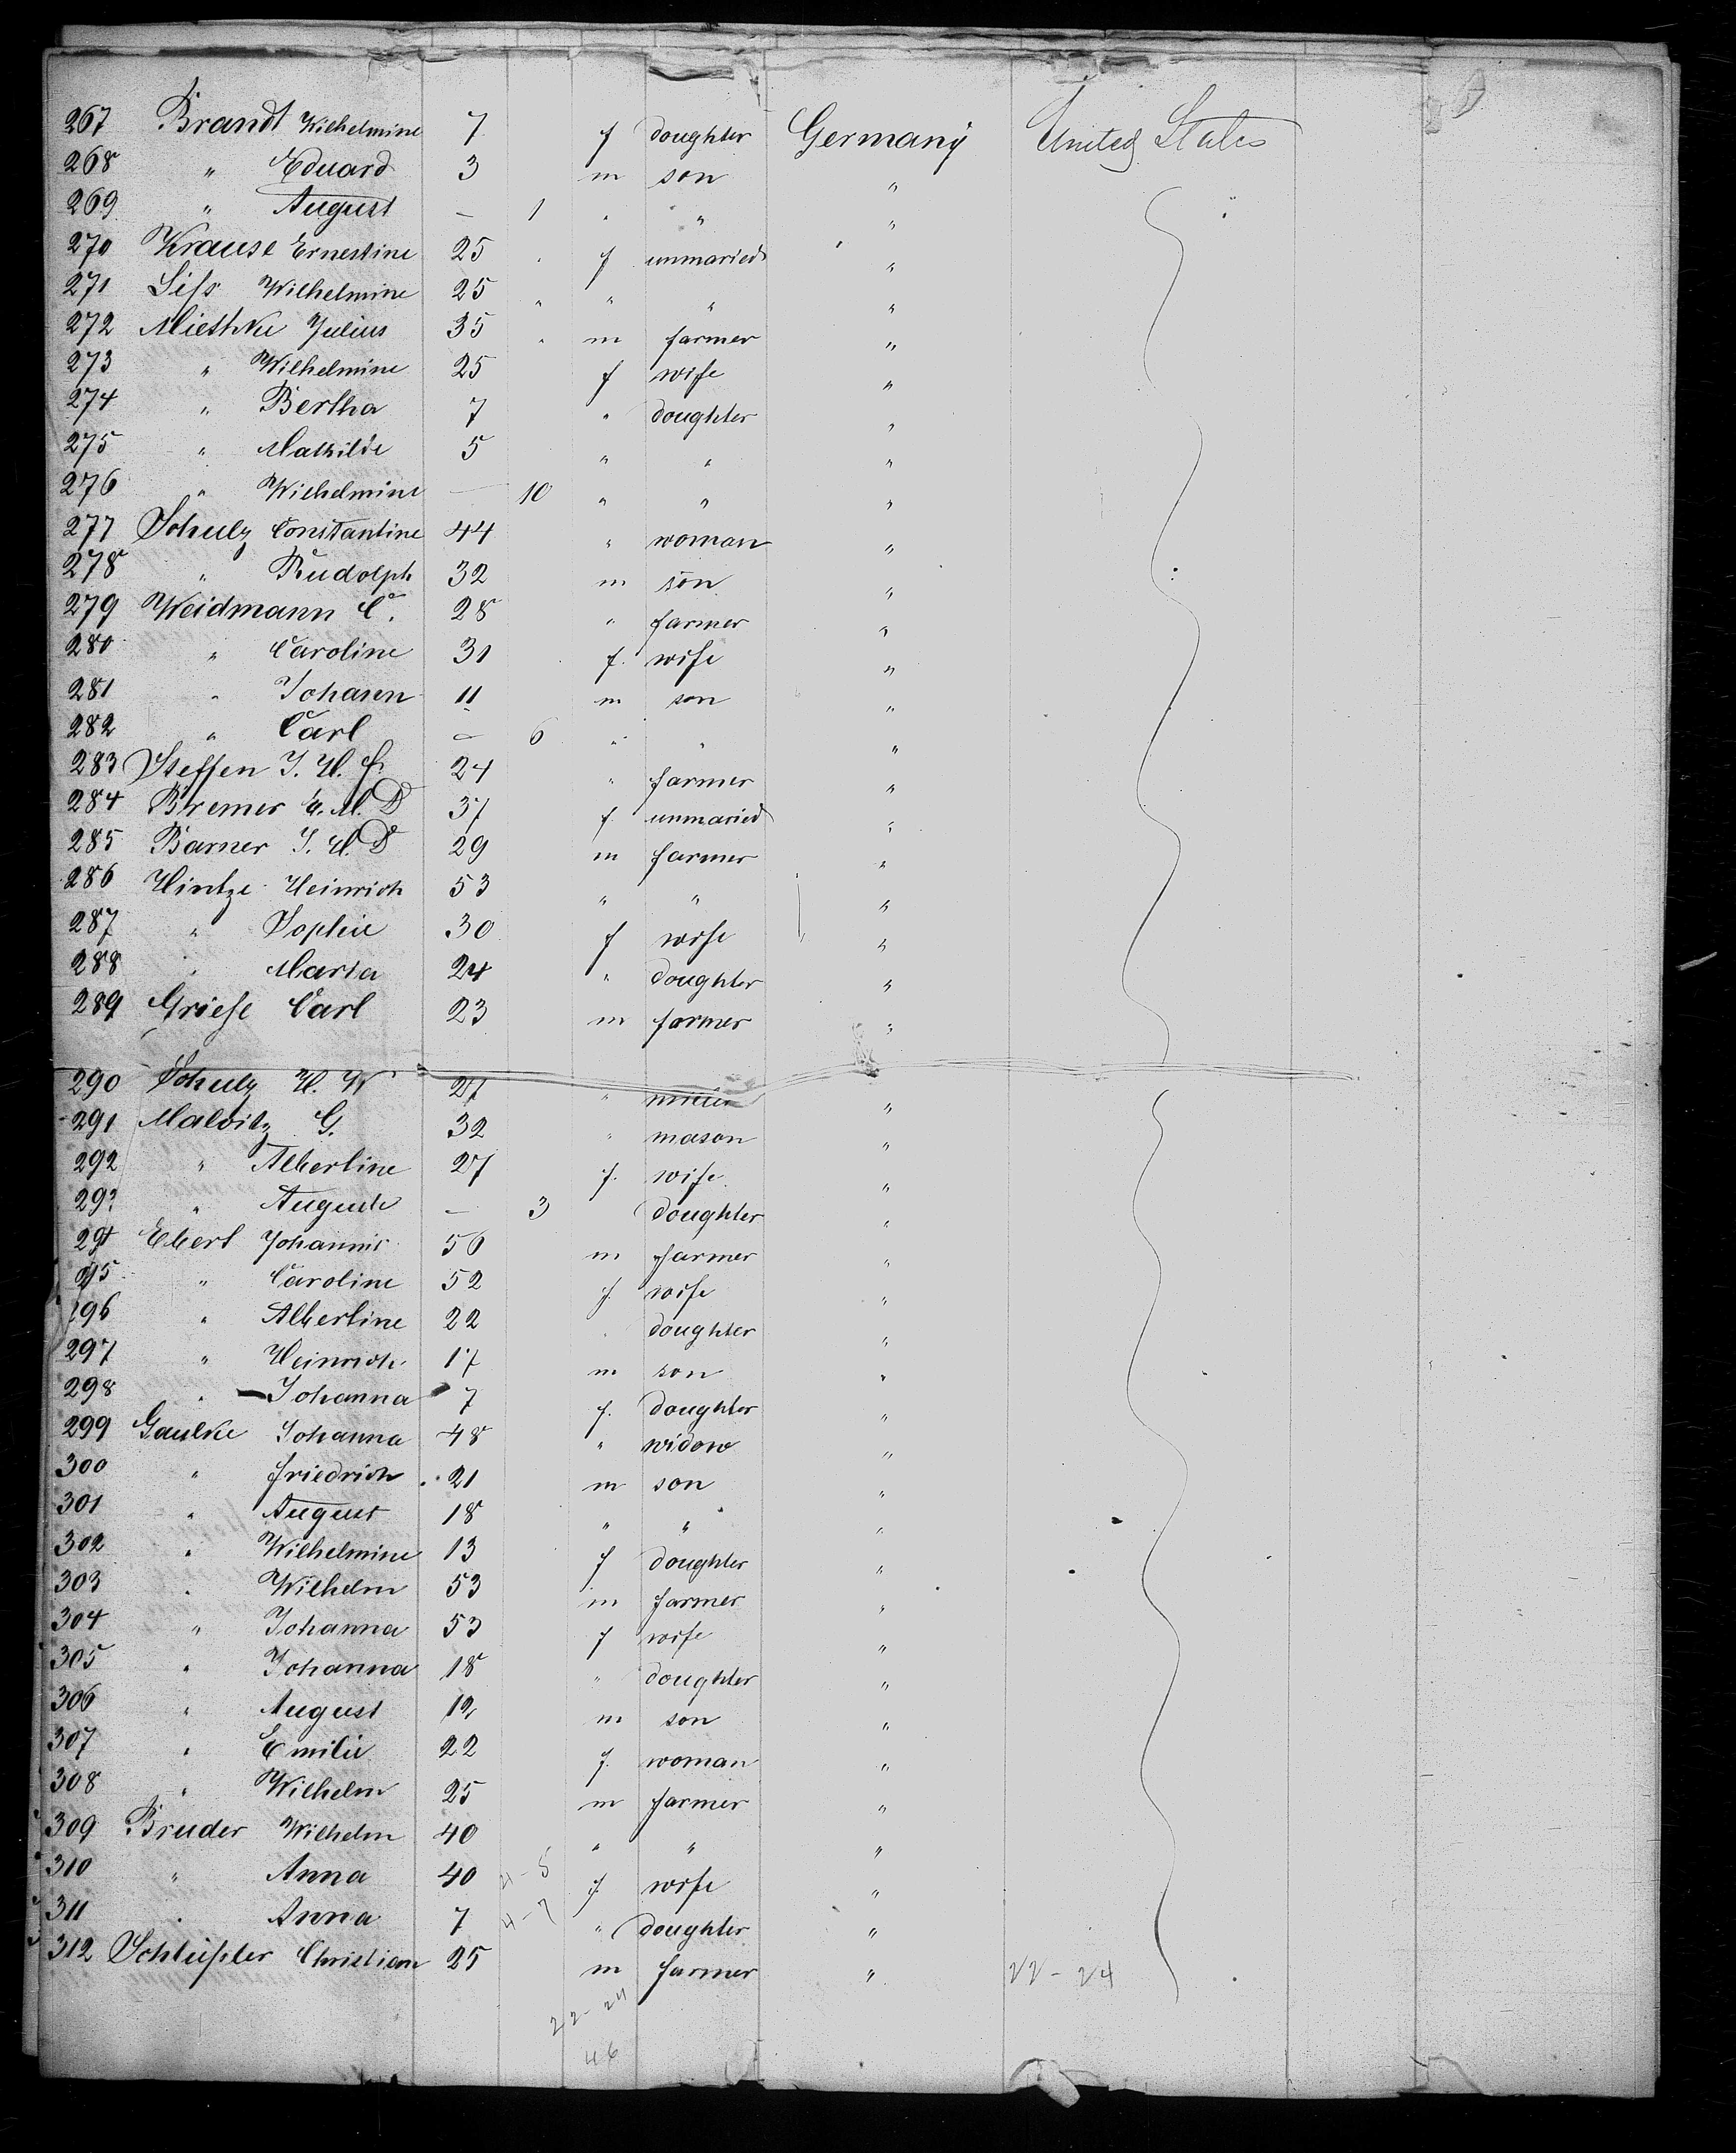 267 Brandt Wilhelmine 7 f doughter Germany United States
268 " Eduard 3 m son "
269 " August — 1 " " "
270 Krause Ernestine 25 f unmaried "
271 Wilhelmine 25 " " "
272 Miethke Julius 35 m farmer "
273 " Wilhelmine 25 f wife "
274 " Bertha 7 " doughter "
275 " Mathilde 5 " " "
276 " Wilhelmine — 10 " " "
277 Schulz Constantine 44 " woman "
278 " Rudolph 32 m son "
279 Weidmann C. 28 " farmer "
280 " Caroline 31 f. wife "
281 " Johann 11 m son "
282 " Carl — 6 " " "
283 Steffen J. H. 24 " farmer "
284 Bremer E. M. D 37 f unmaried "
285 Barner J. H. D 29 m farmer "
286 Hintze Heinrich 53 " " "
287 " Sophie 30 f wife "
288 " Maria 24 " doughter "
289 Griese Carl 23 m farmer "
290 Schulz H. W 27 " "
291 G. 32 " mason "
292 " Albertine 27 f. wife "
293 " Auguste — 3 doughter "
294 Ebert Johannis 50 m farmer "
295 " Caroline 52 f. wife "
296 " Albertine 22 " doughter "
297 " Heinrich 17 m son "
298 " Johanna 7 f. doughter "
299 Gaulke Johanna 48 " widow "
300 " Friedrich 21 m son "
301 " August 18 " " "
302 " Wilhelmine 13 f doughter "
303 " Wilhelm 53 m farmer "
304 " Johanna 53 f wife "
305 " Johanna 18 " doughter "
306 " August 12 m son "
307 " Emilie 22 f. woman "
308 " Wilhelm 25 m farmer "
309 Bruder Wilhelm 40 " " "
310 " Anna 40 4-5 f. wife "
311 " Anna 7 4-7 " doughter "
312 Christian 25 m farmer " 22-24
22-24
46